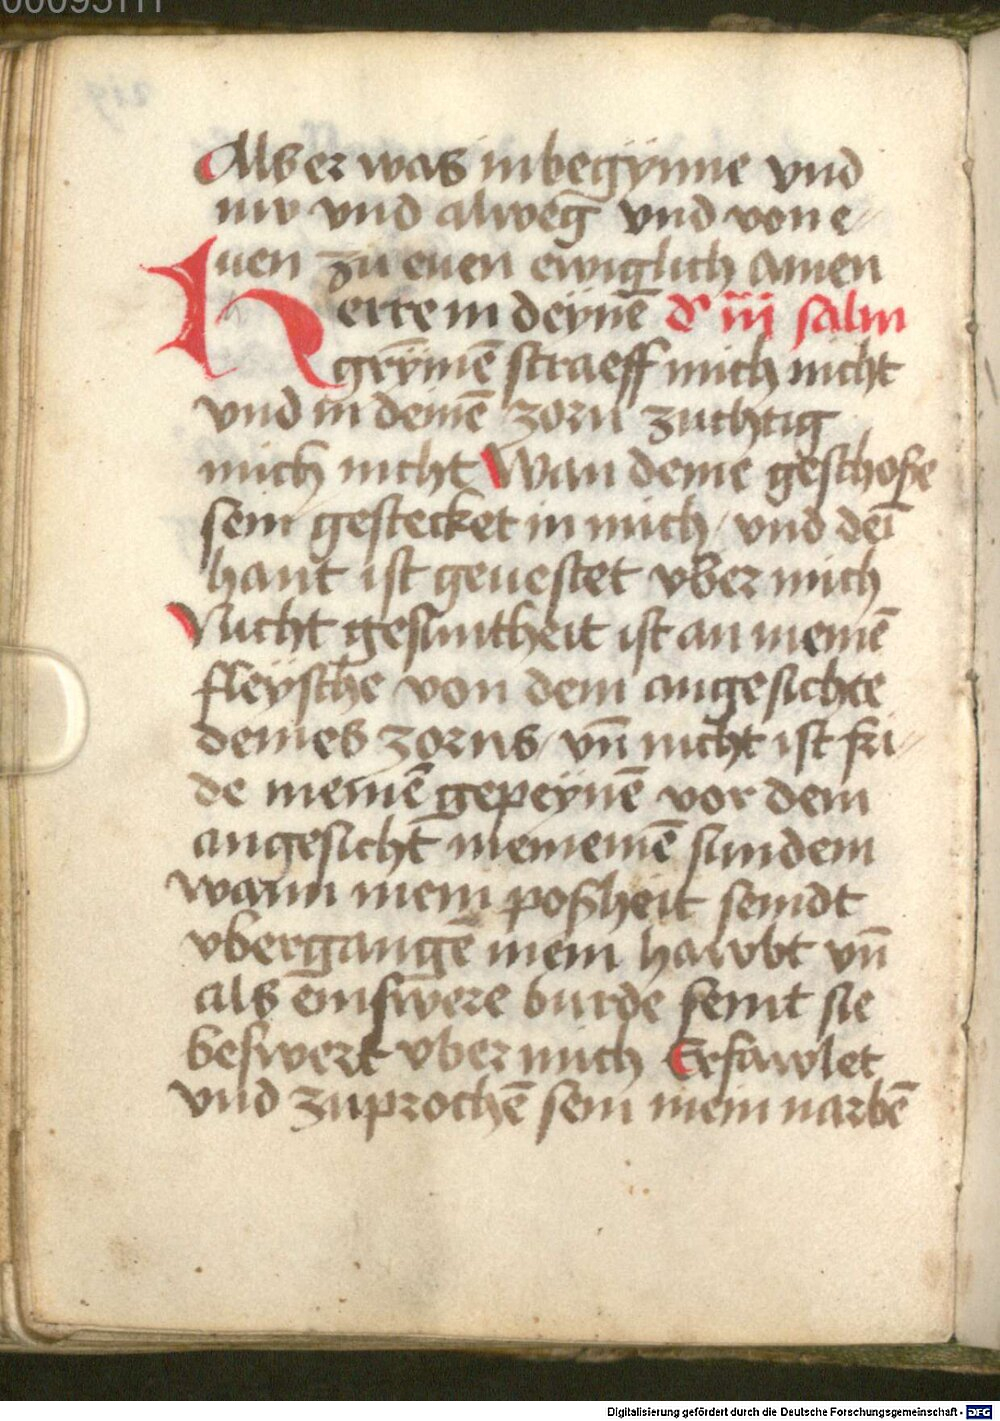 00095111
Als er was in begynne vnd
nw vnd alweg vnd von e-
uen zu euen ewiglich Amen
Herre in deynē d' iii salm
grȳmē straeff mich nicht
vnd in deinē zorn zuchtig
mich nicht Wan deine geschoße
sein gestecket in mich / vnd deī
hant ist geuestet vber mich
Nicht gesuntheit ist an meinē
fleysche von dem angesichte
deines zorns / vn̄ nicht ist fri-
de meinē gepeynē vor dem
angesicht meinē sunden
wann mein poßheit seindt
vbergangē mein hawbt vn̄
als ein swere burde seint sie
beswert vber mich Erfawlet
vnd zuprochē sein mein narbē
Digitalisierung gefördert durch die Deutsche Forschungsgemeinschaft - DFG